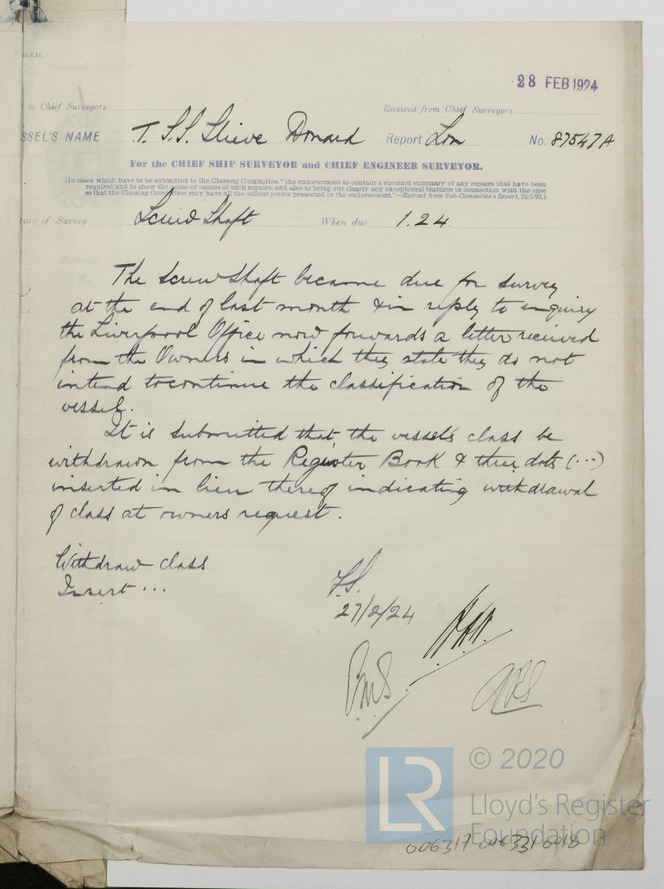 28 FEB 1924
to Chief Surveyors
Received from Chief Surveyors
SSEL'S NAME T. S.S. Slieve Donard Report Lon No. 87547A
For the CHIEF SHIP SURVEYOR and CHIEF ENGINEER SURVEYOR.
(In cases which have to be submitted to the Classing Committee "the endorsement to contain a succinct summary of any repairs that have been
required and to show the cause or causes of such repairs, and also to bring out clearly any exceptional features in connection with the case
so that the Classing Committee may have all the salient points presented in the endorsement."—Extract from Sub-Committee's Report,
of Survey Screw Shaft When due 1.24.
The Screw Shaft became due for survey
at the end of last month & in reply to enquiry
the Liverpool Office now forwards a letter received
from the Owners in which they state they do not
intend to continue the classification of the
vessel.
It is submitted that the vessel's class be
withdrawn from the Register Book & three dots (...)
inserted in lieu thereof indicating withdrawal
of class at owners request.
Withdraw class
Insert ...
27/2/24
LR
© 2020
Lloyd's Register
Foundation
006317-006331-0018